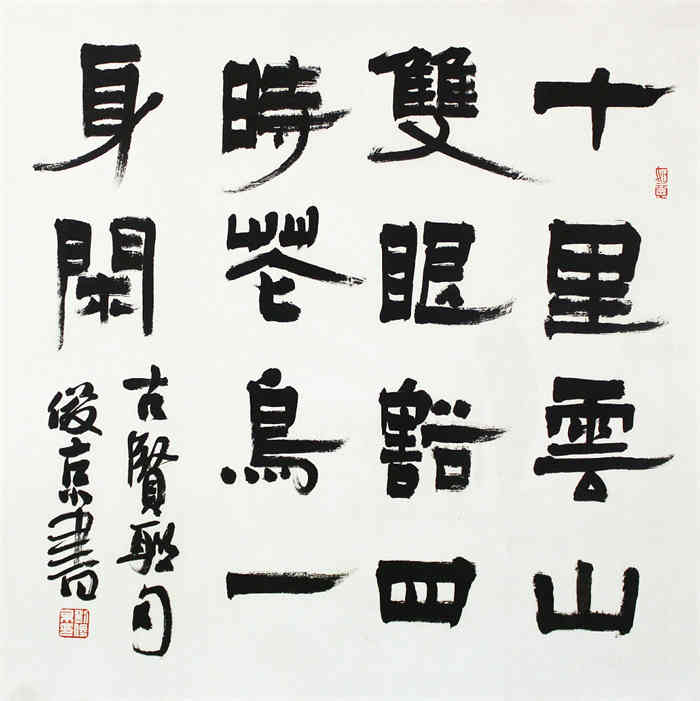 十里雲山
雙眼豁四
時花鳥一
身閑
古賢聯句
俊京書